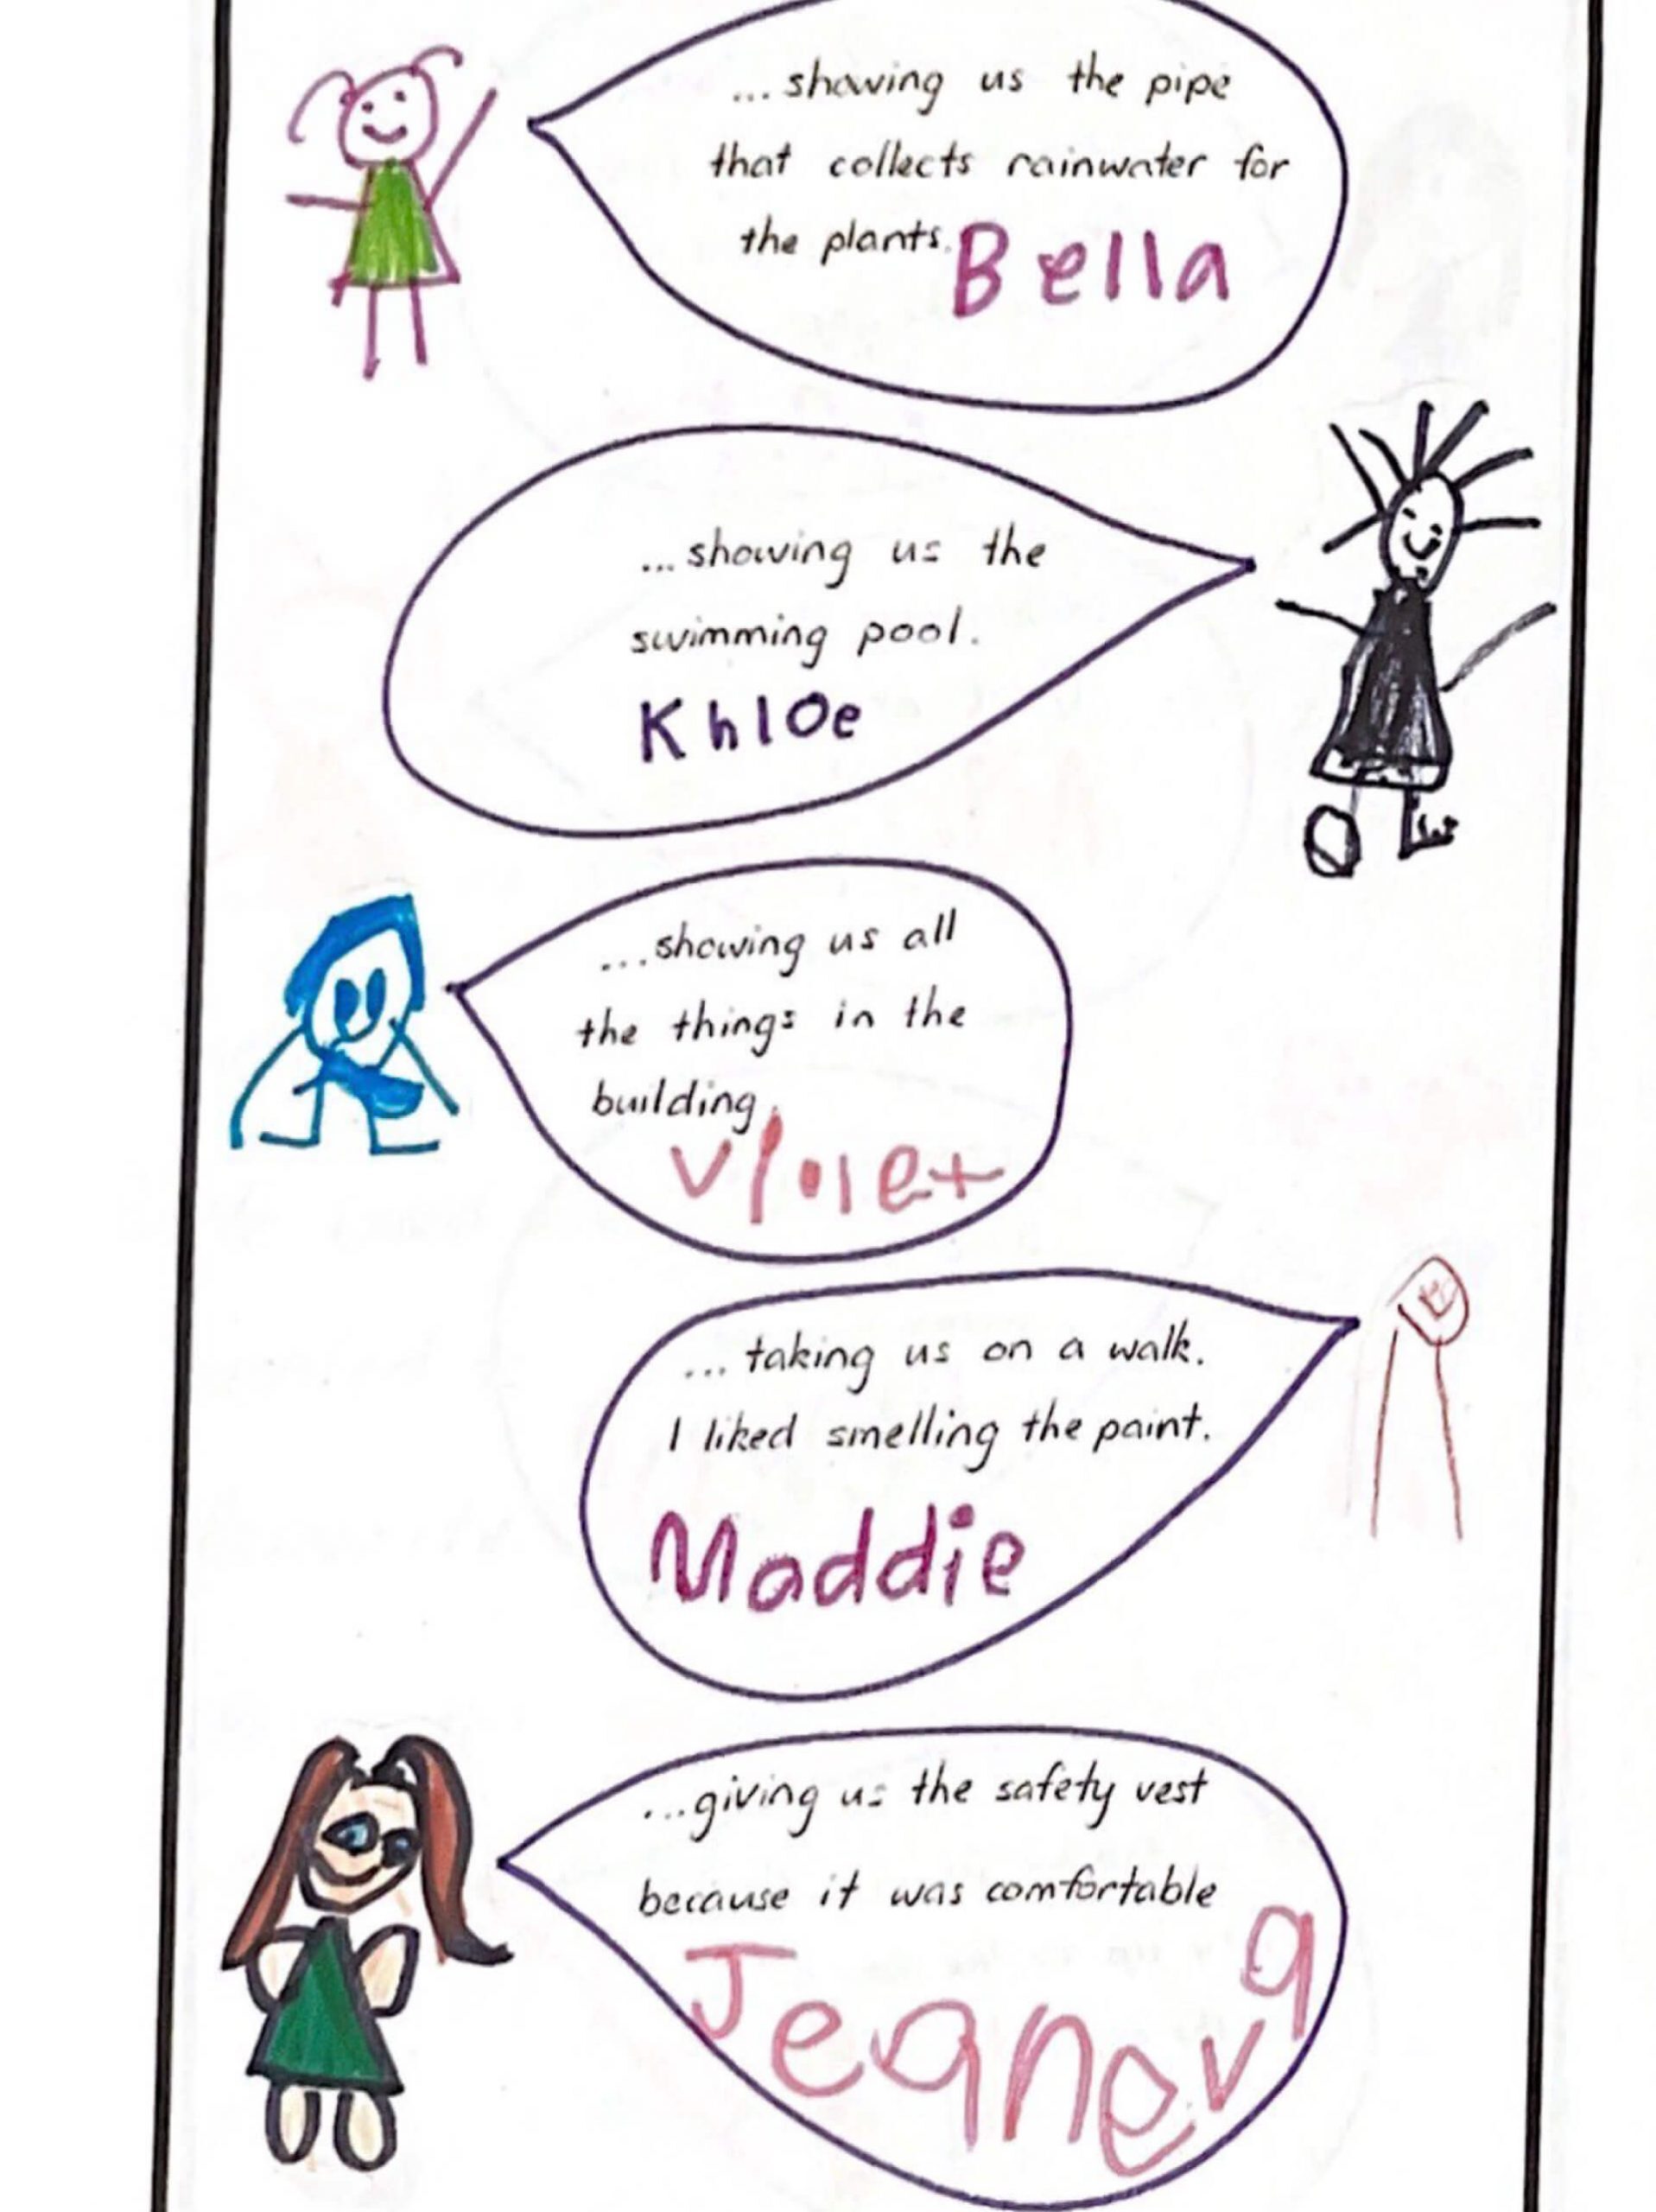 ...showing us the pipe
that collects rainwater for
the plants.
Bella
...showing us the
swimming pool.
Khloe
...showing us all
the things in the
building.
Violet
...taking us on a walk.
I liked smelling the paint.
Maddie
...giving us the safety vest
because it was comfortable
Jeaneva